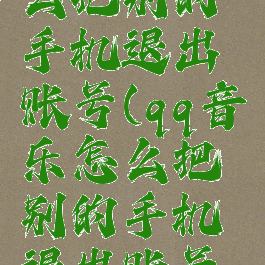 么把别的
手机退出
账号(qq音
乐怎么把
别的手机
退出账号